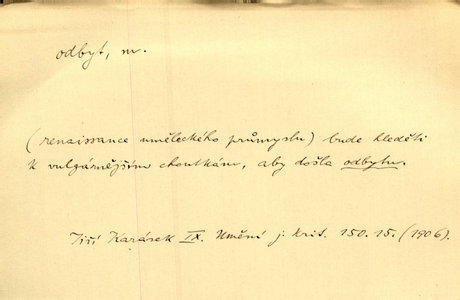 odbyt, m.
(renaissance uměleckého průmyslu) bude hleděti
k vulgárnějším choutkám, aby došla odbytu.
Jiří Karásek IX. Umění j. krit. 150.15. (1906).